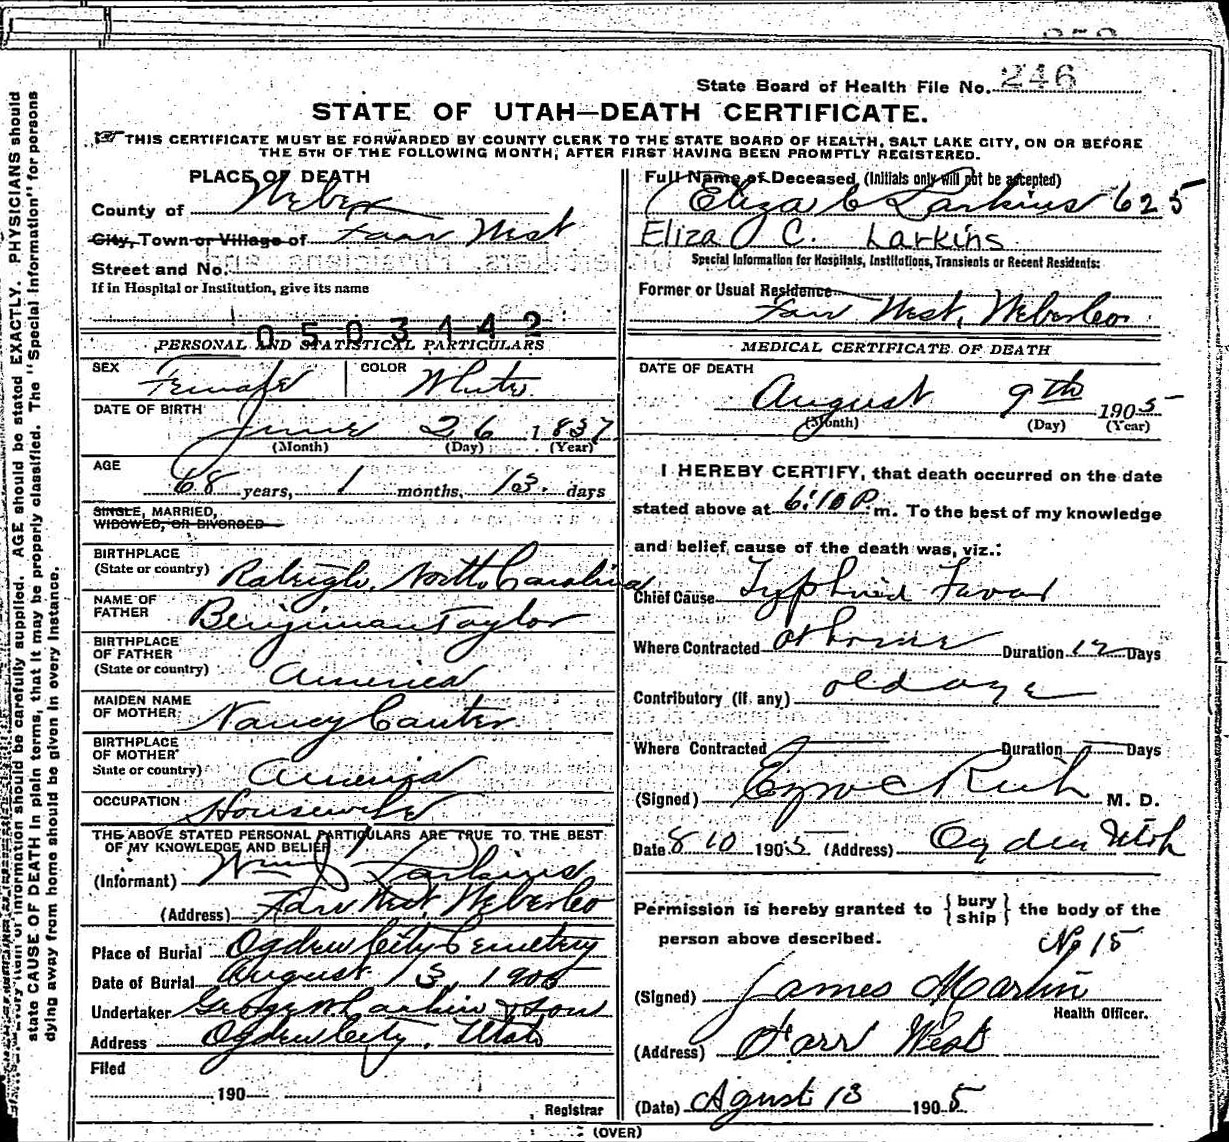 State Board of Health File No. 246
STATE OF UTAH—DEATH CERTIFICATE.
THIS CERTIFICATE MUST BE FORWARDED BY COUNTY CLERK TO THE STATE BOARD OF HEALTH, SALT LAKE CITY, ON OR BEFORE
THE 5TH OF THE FOLLOWING MONTH, AFTER FIRST HAVING BEEN PROMPTLY REGISTERED.
PLACE OF DEATH
County of Weber
City, Town or Village of Farr West
Street and No.
If in Hospital or Institution, give its name
0503142
PERSONAL AND STATISTICAL PARTICULARS
SEX Female COLOR White
DATE OF BIRTH
June 26 1837
(Month) (Day) (Year)
AGE
68 years, 1 months, 13 days
SINGLE, MARRIED,
WIDOWED, OR DIVORCED
BIRTHPLACE
(State or country) Raleigh, North Carolina
NAME OF
FATHER Benjiman Taylor
BIRTHPLACE
OF FATHER
(State or country) America
MAIDEN NAME
OF MOTHER Nancy Cauter
BIRTHPLACE
OF MOTHER
State or country) America
OCCUPATION Housewife
THE ABOVE STATED PERSONAL PARTICULARS ARE TRUE TO THE BEST
OF MY KNOWLEDGE AND BELIEF
(Informant) Wm J Larkins
(Address) Farr West, Weber Co
Place of Burial Ogden City Cemetery
Date of Burial August 13, 1905
Undertaker George W Larkin & Son
Address Ogden City, Utah
Filed
190
Registrar
Full Name of Deceased (Initials only will not be accepted)
Eliza C Larkins 625
Eliza C. Larkins
Special Information for Hospitals, Institutions, Transients or Recent Residents:
Former or Usual Residence
Farr West, Weber Co.
MEDICAL CERTIFICATE OF DEATH
DATE OF DEATH
August 9th 1905
(Month) (Day) (Year)
I HEREBY CERTIFY, that death occurred on the date
stated above at 6:10 P. m. To the best of my knowledge
and belief, cause of the death was, viz.:
Chief Cause Typhoid Favor
Where Contracted at home Duration 12 Days
Contributory (if any) old age
Where Contracted Duration Days
(Signed) Ezra C Rich M. D.
Date 8 10 1905 (Address) Ogden Utah
Permission is hereby granted to {bury ship} the body of the
person above described. No 15
(Signed) James Martin
Health Officer.
(Address) Farr West
(Date) Agust 13 1905
(OVER)
Every item of information should be carefully supplied. AGE should be stated EXACTLY. PHYSICIANS should
state CAUSE OF DEATH in plain terms, that it may be properly classified. The "Special Information" for persons
dying away from home should be given in every instance.